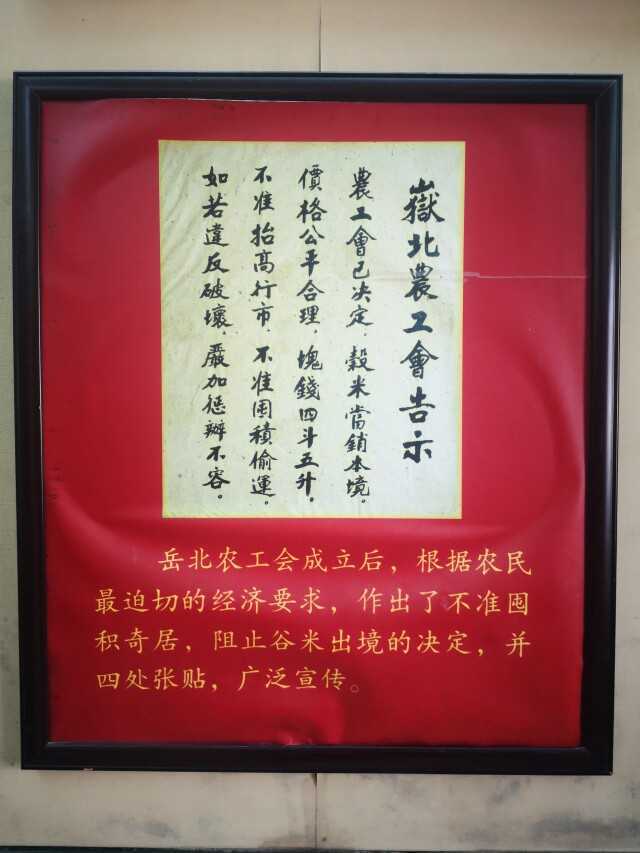 嶽北農工會告示
農工會已决定，穀米當銷本境。
價格公平合理，塊錢四斗五升，
不准抬高行市，不准囤積偷運。
如若違反破壞，嚴加惩辦不容。
岳北农工会成立后，根据农民
最迫切的经济要求，作出了不准囤
积奇居，阻止谷米出境的决定，并
四处张贴，广泛宣传。